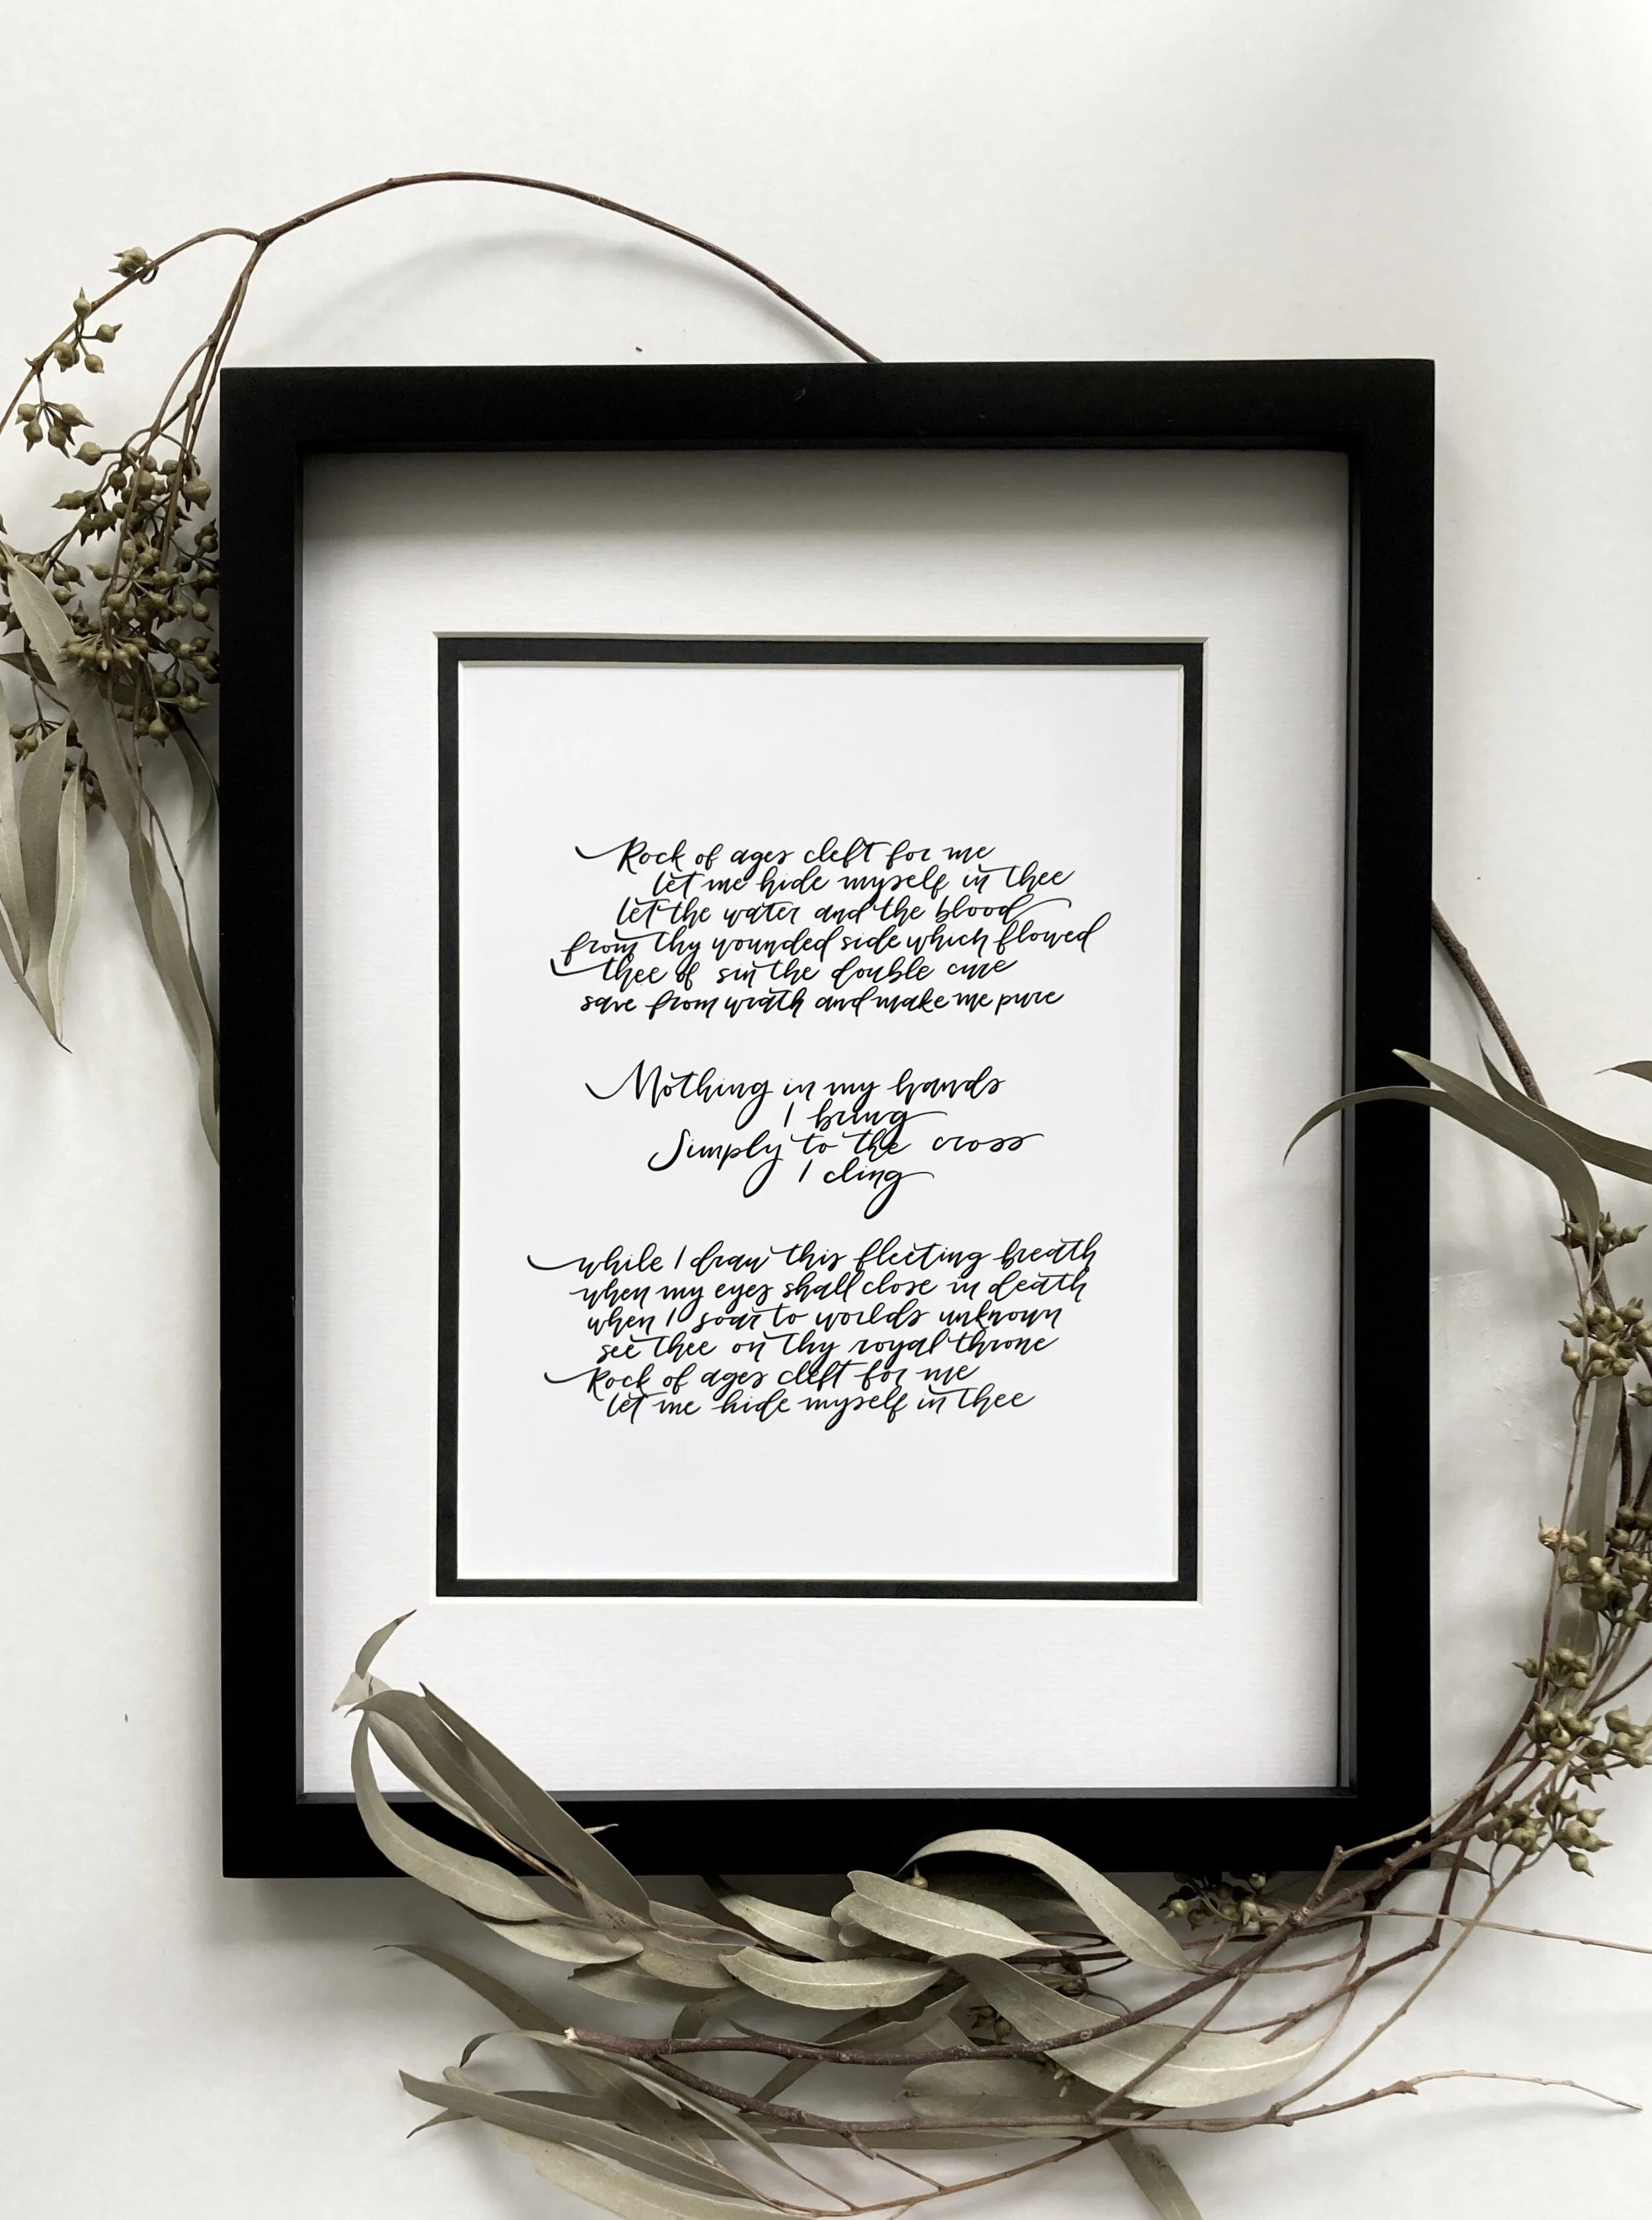 Rock of ages cleft for me
let me hide myself in thee
let the water and the blood
from thy wounded side which flowed
thee of sin the double cure
save from wrath and make me pure
Nothing in my hands
I bring
Simply to the cross
I cling
while I draw this fleeting breath
when my eyes shall close in death
when I soar to worlds unknown
see thee on thy royal throne
Rock of ages cleft for me
let me hide myself in thee